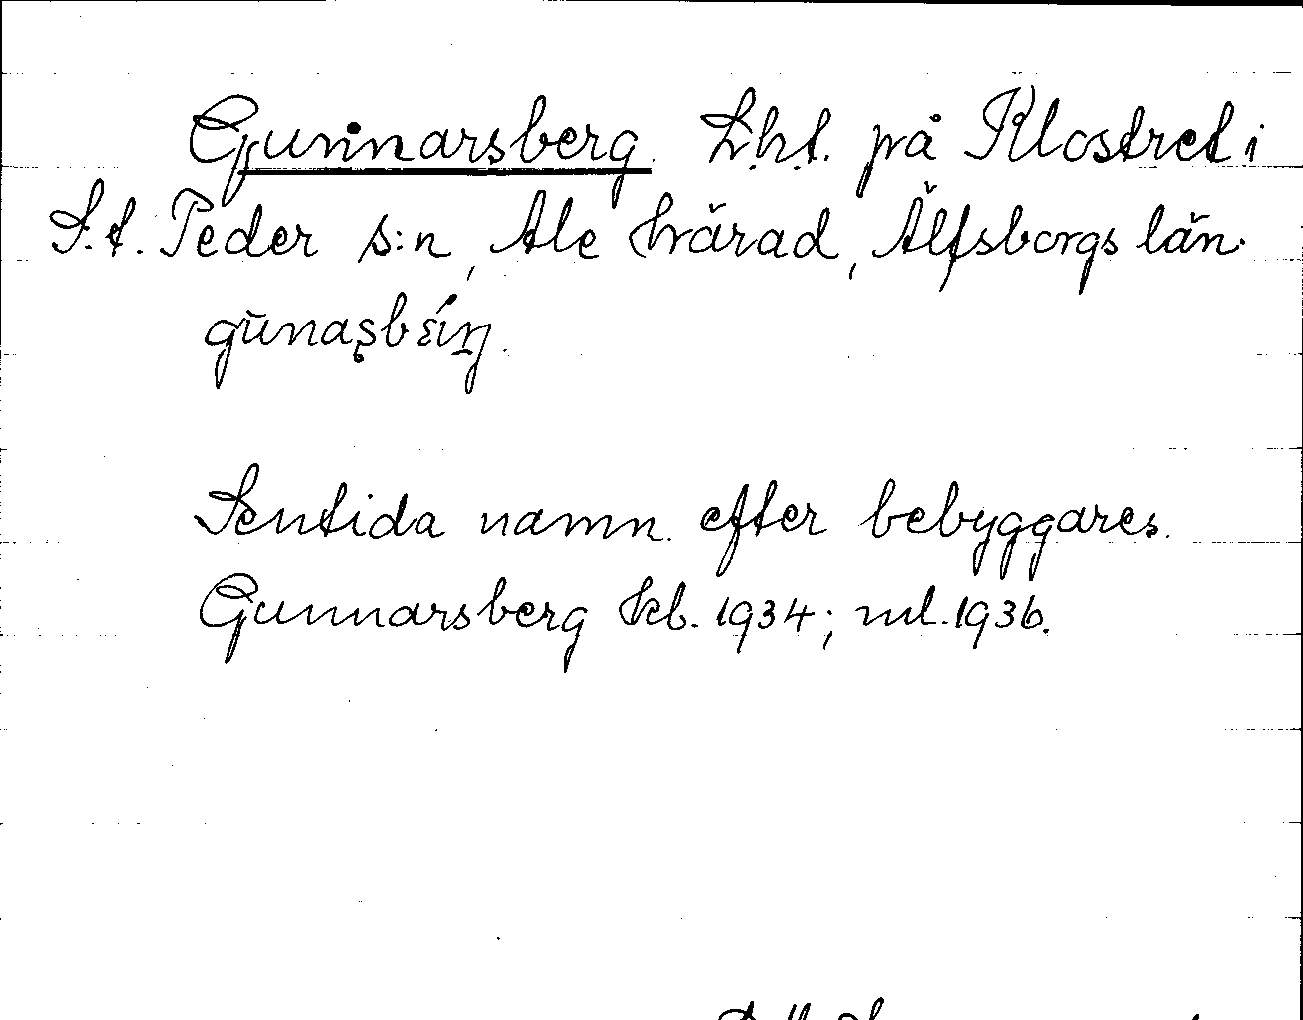 Gunnarsberg L.h.t. på Klostret i
S:t. Peder s:n, Ale härad, Älfsborgs län.
Sentida namn efter bebyggares.
Gunnarsberg kb. 1934; ml. 1936.